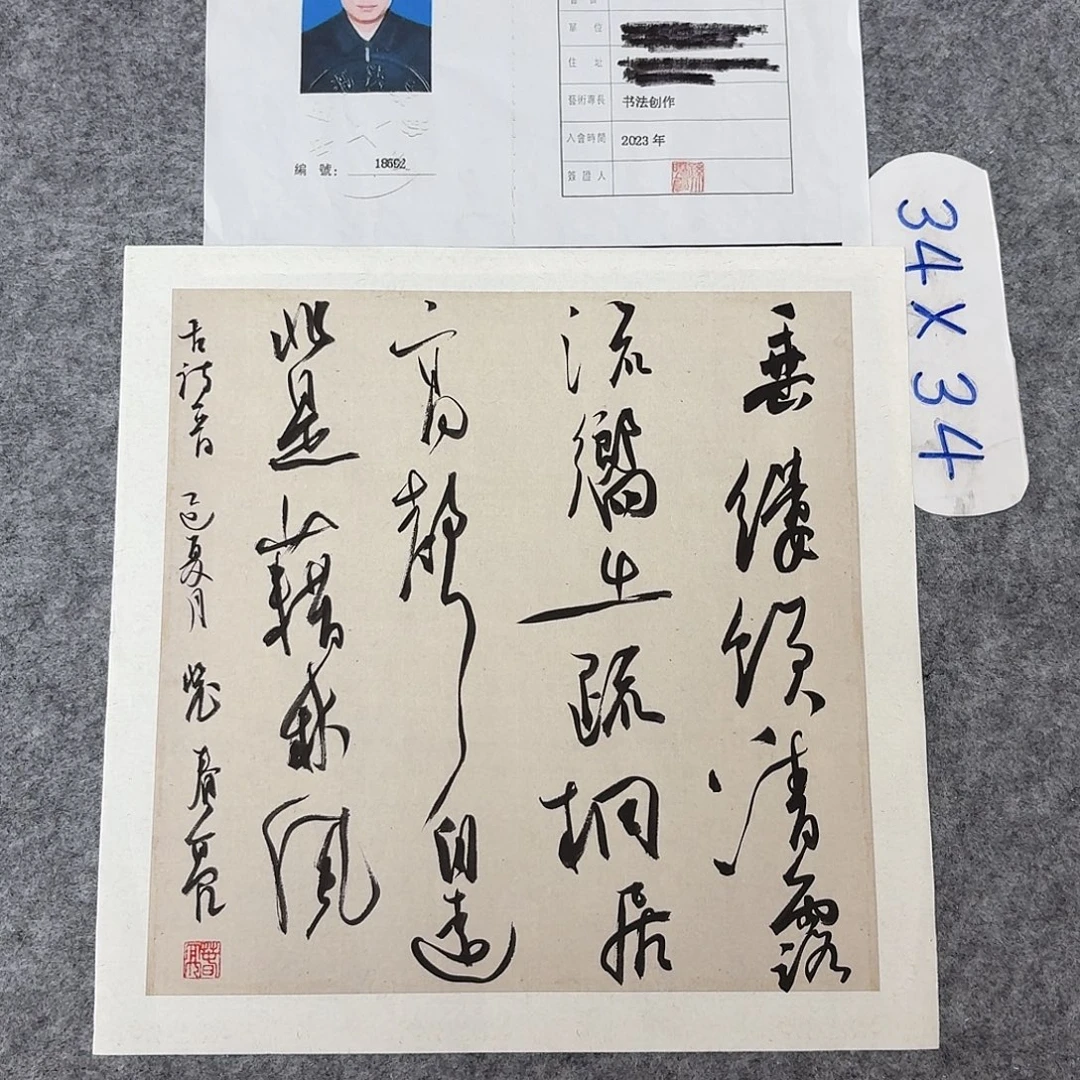 單 位
住 址
藝術專長 书法创作
入會時間 2023 年
簽證人
編 號:
34X34
垂緌飲清露
流響出疏桐居
高聲自遠
非是藉秋風
古詩一首 乙巳夏月